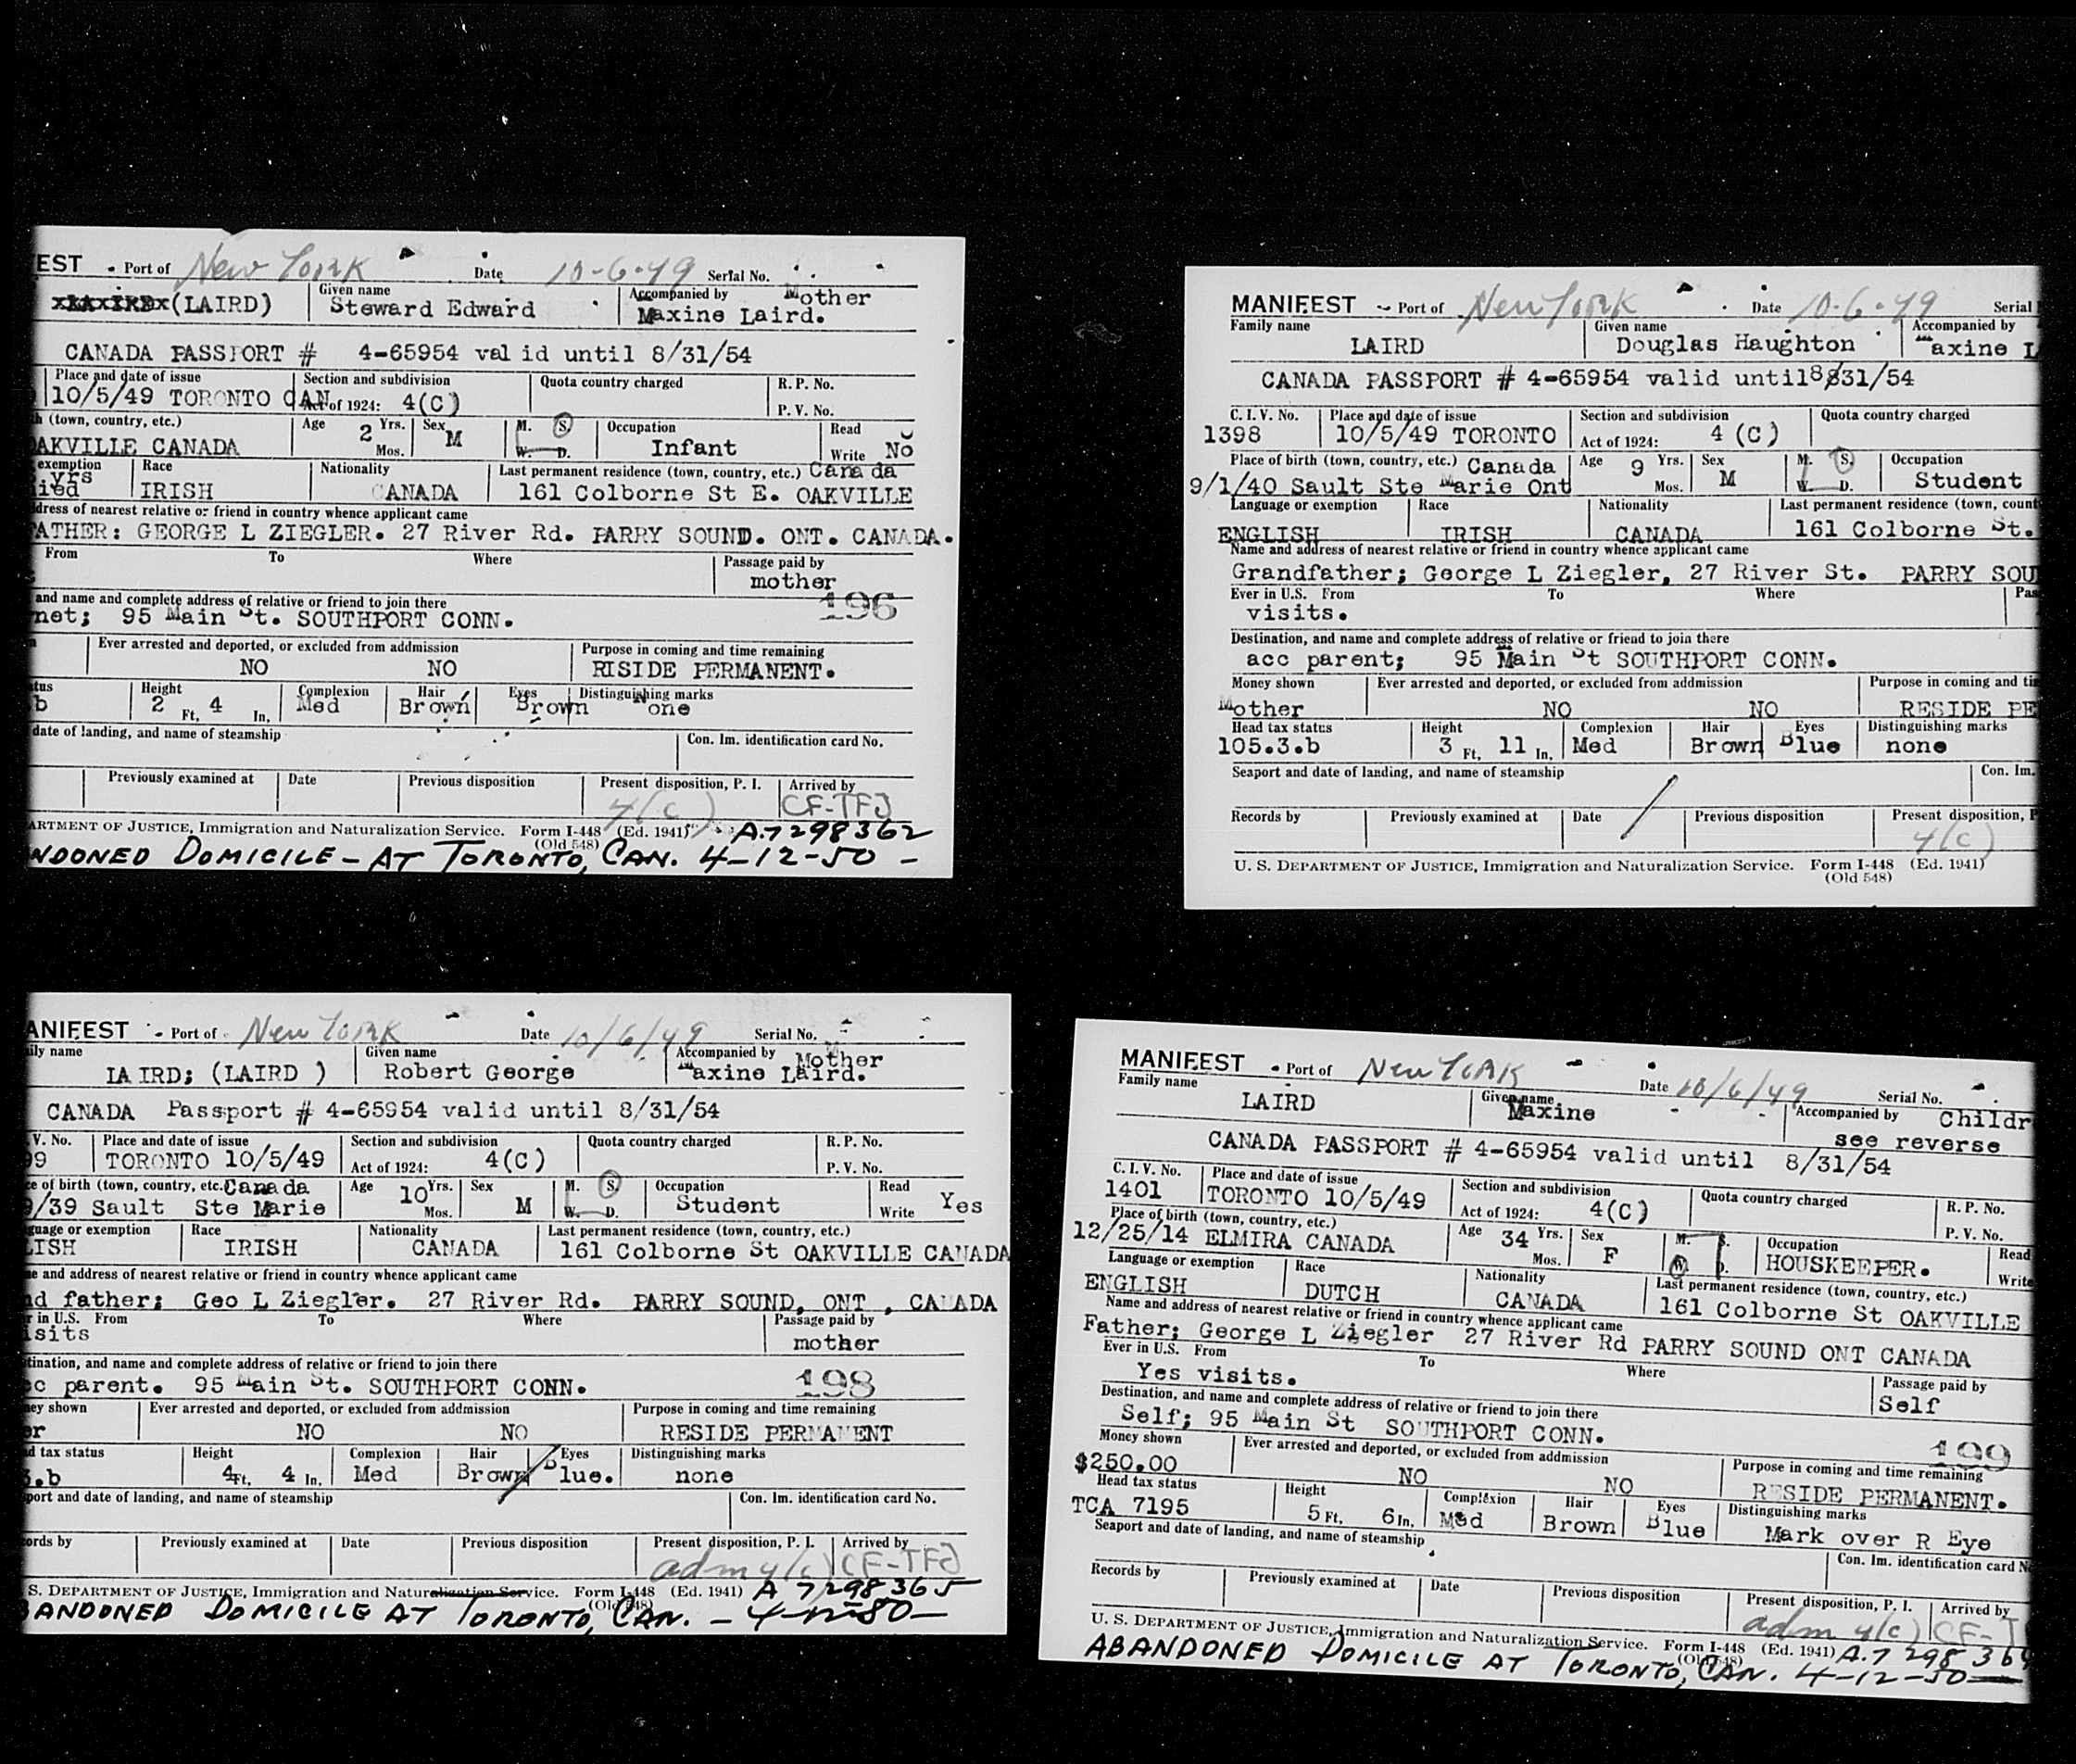 EST Port of New York Date 10-6-49 Serial No.
Given name Accompanied by Mother
(LAIRD) Steward Edward Maxine Laird.
CANADA PASSPORT # 4-65954 valid until 8/31/54
Place and date of issue Section and subdivision Quota country charged R. P. No.
10/5/49 TORONTO CAN Act of 1924: 4(C) P. V. No.
h (town, country, etc.) Age 2 Yrs. Sex M M. S. Occupation Read
OAKVILLE CANADA Mos. W. D. Infant Write No
exemption yrs Race Nationality Last permanent residence (town, country, etc.) Canada
IRISH CANADA 161 Colborne St E. OAKVILLE
dress of nearest relative or friend in country whence applicant came
FATHER: GEORGE L ZIEGLER. 27 River Rd. PARRY SOUND. ONT. CANADA.
From To Where Passage paid by
mother
196
and name and complete address of relative or friend to join there
net; 95 Main St. SOUTHPORT CONN.
Ever arrested and deported, or excluded from addmission Purpose in coming and time remaining
NO NO RISIDE PERMANENT.
tus Height Complexion Hair Eyes Distinguishing marks
b 2 Ft. 4 In. Med Brown Brown None
date of landing, and name of steamship Con. Im. identification card No.
Previously examined at Date Previous disposition Present disposition, P. I. Arrived by
4(c) CF-TFJ
ARTMENT OF JUSTICE, Immigration and Naturalization Service. Form I-448 (Ed. 1941) A.7298362
(Old 548)
NDONED DOMICILE - AT TORONTO, CAN. 4-12-50 -
MANIFEST Port of New York Date 10-6-49 Serial
Family name Given name Accompanied by
LAIRD Douglas Haughton Maxine L
CANADA PASSPORT # 4-65954 valid until 8/31/54
C. I. V. No. Place and date of issue Section and subdivision Quota country charged
1398 10/5/49 TORONTO Act of 1924: 4 (C)
Place of birth (town, country, etc.) Canada Age 9 Yrs. Sex M. S. Occupation
9/1/40 Sault Ste Marie Ont Mos. M W. D. Student
Language or exemption Race Nationality Last permanent residence (town, count
ENGLISH IRISH CANADA 161 Colborne St.
Name and address of nearest relative or friend in country whence applicant came
Grandfather; George L Ziegler, 27 River St. PARRY SOU
Ever in U.S. From To Where Pas
visits.
Destination, and name and complete address of relative or friend to join there
acc parent; 95 Main St SOUTHPORT CONN.
Money shown Ever arrested and deported, or excluded from addmission Purpose in coming and ti
Mother NO NO RESIDE PE
Head tax status Height Complexion Hair Eyes Distinguishing marks
105.3.b 3 Ft. 11 In. Med Brown Blue none
Seaport and date of landing, and name of steamship Con. Im.
Records by Previously examined at Date Previous disposition Present disposition, P
4(c)
U. S. DEPARTMENT OF JUSTICE, Immigration and Naturalization Service. Form I-448 (Ed. 1941)
(Old 548)
ANIFEST Port of New York Date 10/6/49 Serial No.
ily name Given name Accompanied by Mother
LAIRD; (LAIRD ) Robert George Maxine Laird.
CANADA Passport # 4-65954 valid until 8/31/54
V. No. Place and date of issue Section and subdivision Quota country charged R. P. No.
99 TORONTO 10/5/49 Act of 1924: 4(C) P. V. No.
ce of birth (town, country, etc. Canada Age 10 Yrs. Sex M. S. Occupation Read
9/39 Sault Ste Marie Mos. M W. D. Student Write Yes
guage or exemption Race Nationality Last permanent residence (town, country, etc.)
LISH IRISH CANADA 161 Colborne St OAKVILLE CANADA
me and address of nearest relative or friend in country whence applicant came
nd father; Geo L Ziegler. 27 River Rd. PARRY SOUND, ONT , CANADA
r in U.S. From To Where Passage paid by
isits mother
tination, and name and complete address of relative or friend to join there
cc parent. 95 Main St. SOUTHPORT CONN. 198
ney shown Ever arrested and deported, or excluded from addmission Purpose in coming and time remaining
er NO NO RESIDE PERMANENT
d tax status Height Complexion Hair Eyes Distinguishing marks
3.b 4 Ft. 4 In. Med Brown Blue. none
port and date of landing, and name of steamship Con. Im. identification card No.
ords by Previously examined at Date Previous disposition Present disposition, P. I. Arrived by
adm 4(c) CF-TFJ
S. DEPARTMENT OF JUSTICE, Immigration and Naturalization Service. Form I-448 (Ed. 1941) A 7298365
(Old 548)
BANDONED DOMICILE AT TORONTO, CAN. - 4-12-50 -
MANIFEST Port of New York Date 10/6/49 Serial No.
Family name Given name Accompanied by Childr
LAIRD Maxine see reverse
CANADA PASSPORT # 4-65954 valid until 8/31/54
C. I. V. No. Place and date of issue Section and subdivision Quota country charged R. P. No.
1401 TORONTO 10/5/49 Act of 1924: 4(C) P. V. No.
Place of birth (town, country, etc.) Age 34 Yrs. Sex M. S. Occupation Read
12/25/14 ELMIRA CANADA Mos. F W. D. HOUSKEEPER. Write
Language or exemption Race Nationality Last permanent residence (town, country, etc.)
ENGLISH DUTCH CANADA 161 Colborne St OAKVILLE
Name and address of nearest relative or friend in country whence applicant came
Father; George L Ziegler 27 River Rd PARRY SOUND ONT CANADA
Ever in U.S. From To Where Passage paid by
Yes visits. Self
Destination, and name and complete address of relative or friend to join there
Self; 95 Main St SOUTHPORT CONN. 199
Money shown Ever arrested and deported, or excluded from addmission Purpose in coming and time remaining
$250.00 NO NO RESIDE PERMANENT.
Head tax status Height Complexion Hair Eyes Distinguishing marks
TCA 7195 5 Ft. 6 In. Med Brown Blue Mark over R Eye
Seaport and date of landing, and name of steamship Con. Im. identification card N
Records by Previously examined at Date Previous disposition Present disposition, P. I. Arrived by
adm 4(c) CF-T
U. S. DEPARTMENT OF JUSTICE, Immigration and Naturalization Service. Form I-448 (Ed. 1941) A.7 298 364
(Old 548)
ABANDONED DOMICILE AT TORONTO, CAN. 4-12-50